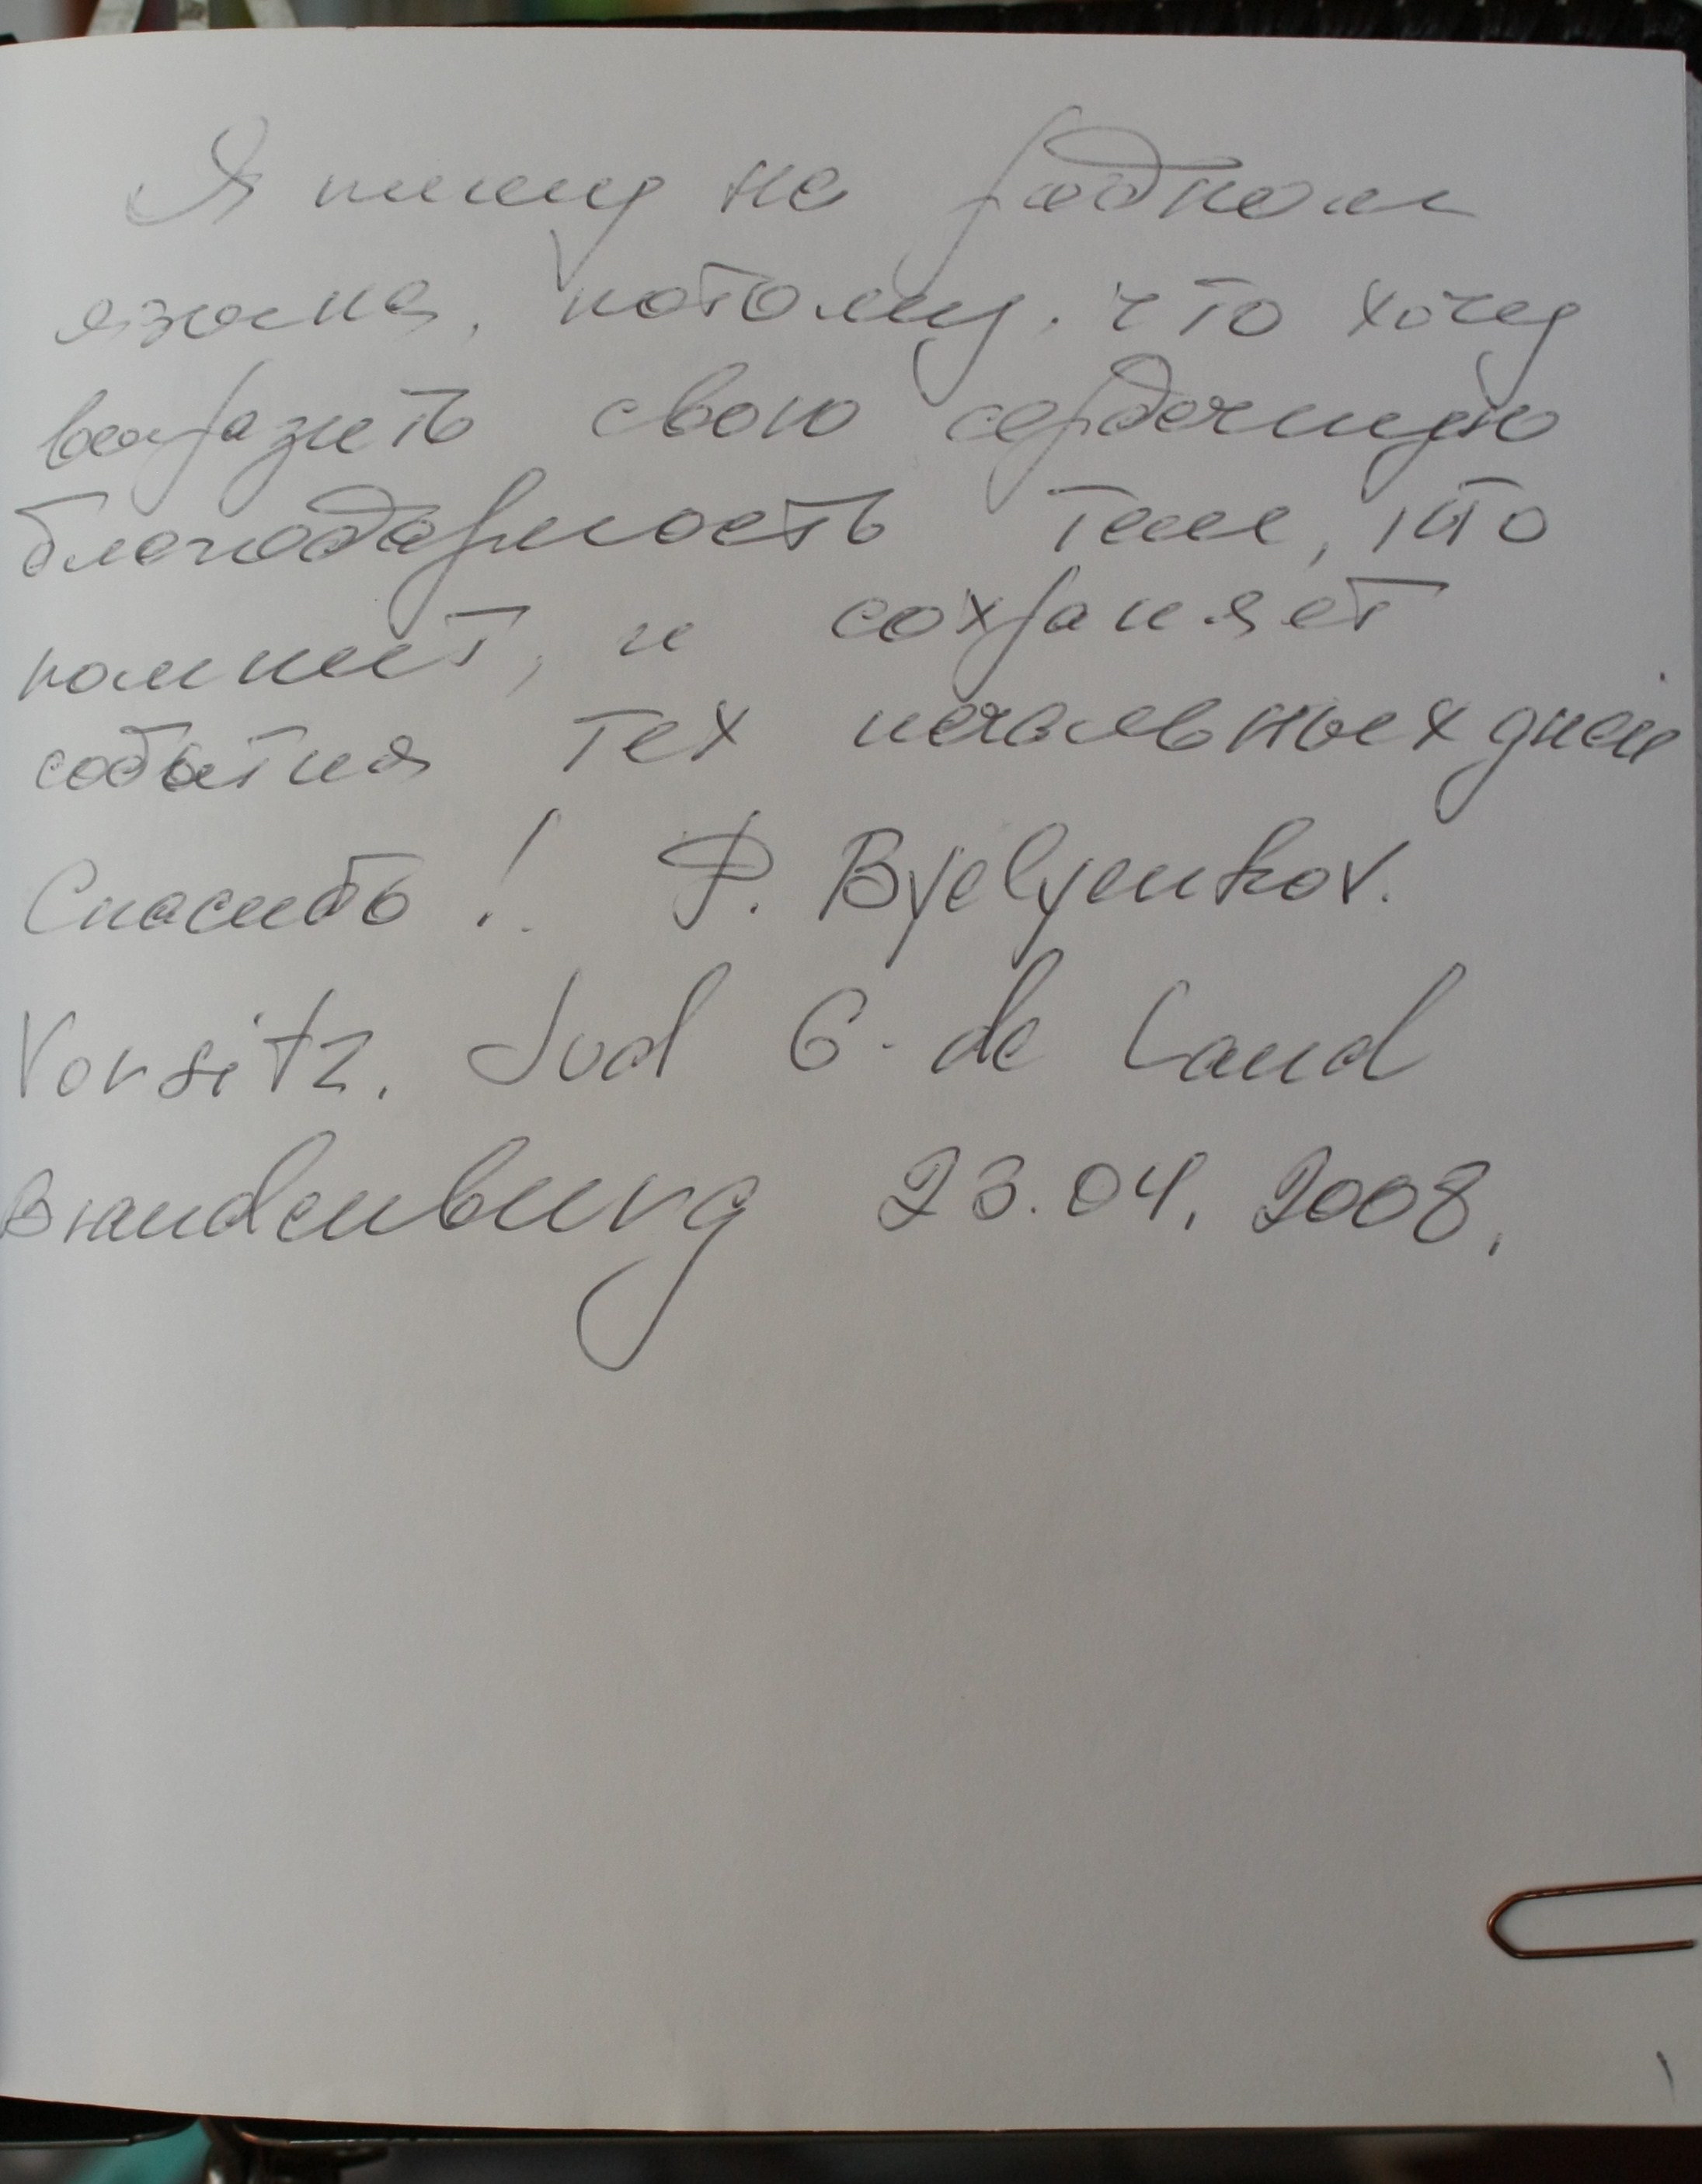 Я пишу на родном
языке, потому, что хочу
выразить свою сердечную
благодарность теме, кто
помнит, и сохраняет
события тех печальных дней
Спасибо! P. Byelyenkov.
Vorsitz. Jud G. de Land
Brandenburg 23.04.2008.